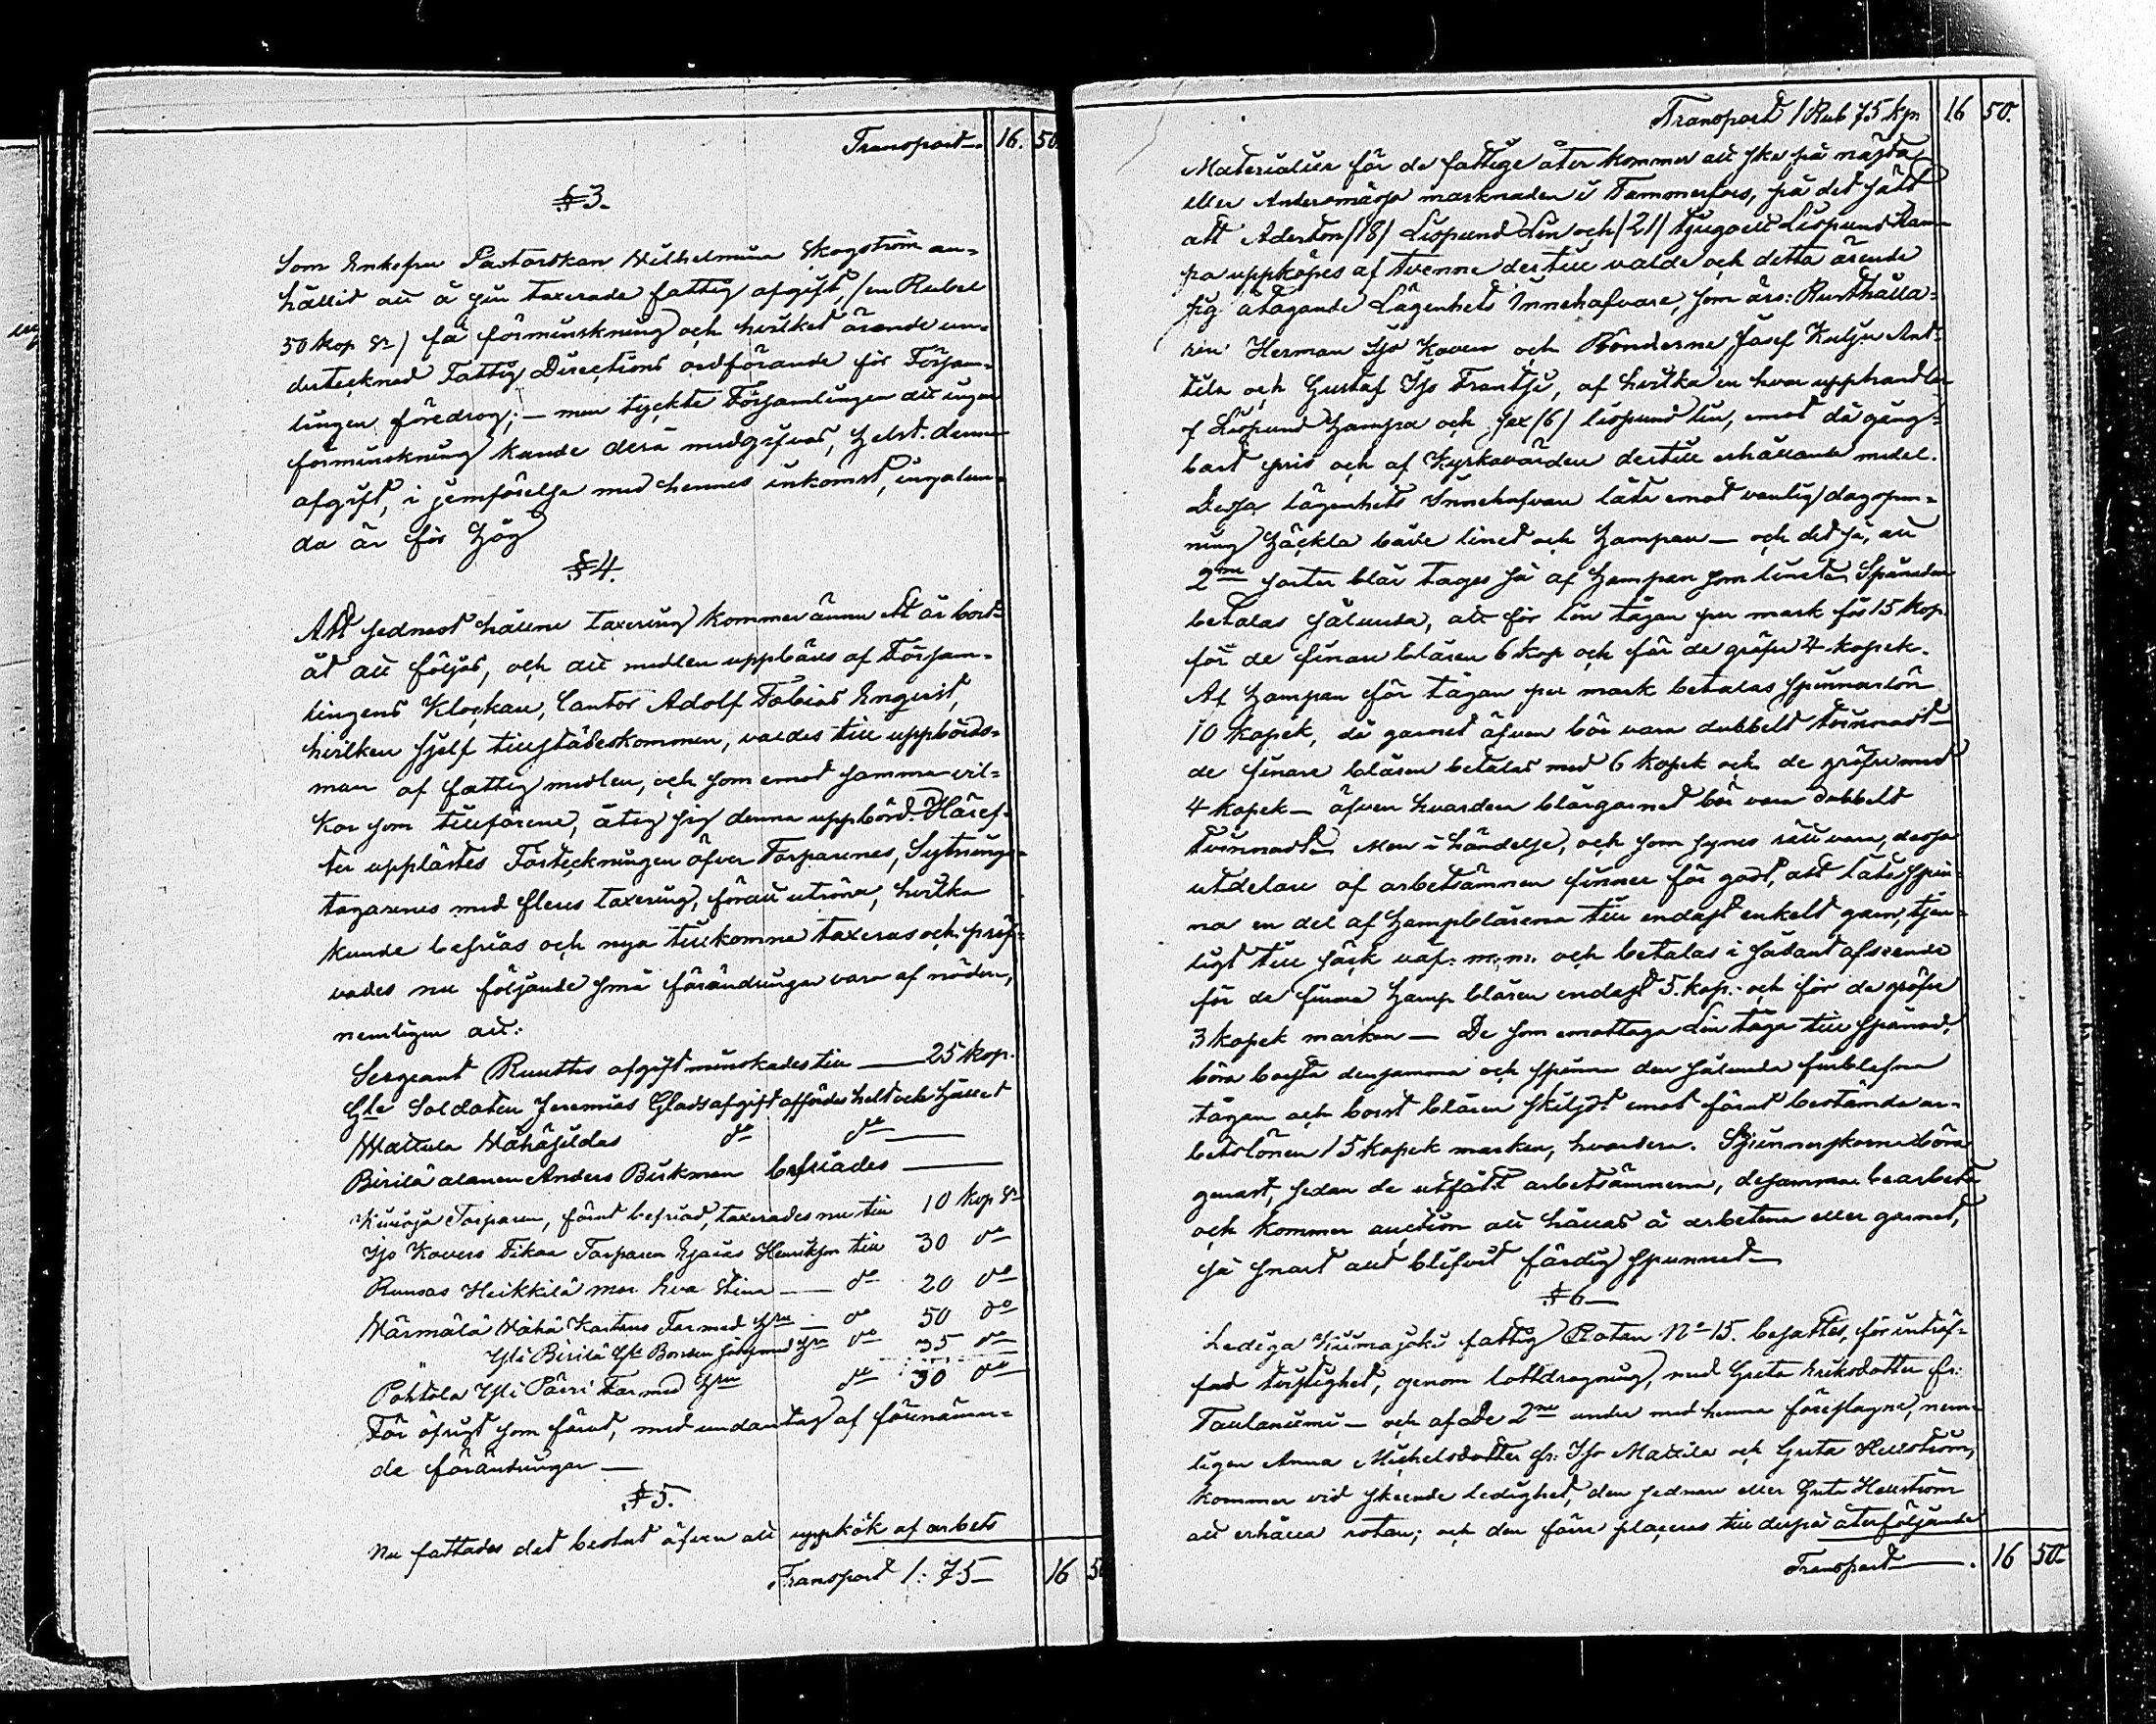 Transport. 16. 50
§ 3.
Som Enkefru Pastorskan Wilhelmina Skogström an=
hållit att å sin taxerade fattig afgift, (en Rubel
50 kop Sr) få förminskning och hvilket ärende un=
dertecknad Fattig Directions ordförande för Försam=
lingen föredrog; — men tyckte Församlingen att ingen
förminskning kunde derå medgifvas, helst denna
afgift, i jemförelse med hennes inkomst, ingalun=
da är för hög
§ 4.
Att sednast hållne taxering kommer ännu ett år bort=
åt att följas, och att medlen uppbäras af Försam=
lingens Klockare, Cantor Adolf Tobias Enqvist,
hvilken sjelf tillstädeskommen, valdes till uppbörds=
man af fattig medlen, och som emot samma vil=
kor som tillförene, åtog sig denna uppbörd. Häref=
ter upplästes Förteckningen öfver Torparenes, Sytnings=
tagarenes med fleres taxering, för att utröna, hvilka
kunde befrias och nya tillkomne taxeras och pröf=
vades nu följande små förändringar vara af nöden,
nemligen att:
Sergeant Ruuttis afgift minskades till — 25 kop.
Gle Soldaten Jeremias Glads afgift affördes helt och hållet
Mattula Wähäsildas do do —
Birilä alanen Anders Birkman befriades —
Torparen, förut befriad, taxerades nu till 10 kop Sr
Iso Kovero Fikan Torparen Esaias Henriksson till 30 do
Runsas Heikkilä mor Eva Stina — do 20 do
Närmälä Wähä Far med hu — do 50 do
Yli Birilä do 35 do
Pohtola Yli Päiri Far med hu do 30 do
För öfrigt som förut, med undantag af förenämn=
de förändringar —
§ 5.
Nu fattades det beslut äfven att uppkök af arbets
Transport 1: 75 — 16 50
Transport 1 Rub 75 kpr 16 50.
Materialier för de fattige åter kommer att ske på nästa
eller Andersmässo marknaden i Tammerfors, på det sätt
att Aderton (18) Lispund Lin och (21) tjugoett Lispund Ham=
pa uppköpes af tvenne dertill valde och detta ärende
sig åtagande Lägenhets Innehafvare, som äro: Rusthålla=
ren Herman Iso Kovero och Bönderne Josef Kulju Ant=
tila och Gustaf Iso Frantsi, af hvilka en hvar upphandlar
7 Lispund hampa och sex (6) lispund lin, emot då gång=
bart pris och af Kyrkovärden dertill erhållande medel.
Dessa lägenhets Innehafvare låta emot vanlig dagspen=
ning häckla både linet och hampan — och det så, att
2ne sorter blår tages så af hampan som linet. Spånaden
betalas sålunda, att för lin tågan per mark fås 15 kop.
för de finare blåren 6 kop och för de gröfre 4 kopek.
Af hampan för tågan per mark betalas spinnarlön
10 kopek, då garnet äfven bör vara dubbelt tvinnadt
de finare blåren betalas med 6 kopek och de gröfre med
4 kopek — äfven hvardera blårgarnet bör vara dubbelt
tvinnadt. Men i händelse, och som synes rätt vara, dessa
utdelare af arbetsämnen finner för godt, att låta spin=
na en del af hampblåren till endast enkelt garn, tjen=
ligt till säck väf: m, m. och betalas i sådant afseende
för de finare hamp blåren endast 5. kop: och för de gröfre
3 kopek marken — De som emottaga Lin tåga till spånad,
böra borsta densamma och spinna den sålunda finblefna
tågan och borst blåren skiljdt emot förut bestämda ar=
betslönen 15 kopek marken, hvardera. Spinnerskorna böra
genast, sedan de utfått arbetsämnena, desamma bearbeta
och kommer auction att hållas å arbetena eller garnet,
så snart allt blifvit färdig spunnet —
§ 6 —
Lediga Kiimajoki fattig Rotan No 15. besattes, för inträf=
fad tvistighet, genom lottdragning, med Greta Eriksdotter fr:
Taulaniemi — och af de 2ne andre med henne föreslagne, nem=
ligen Anna Michelsdotter fr: Iso Mattila och Greta Hellström,
kommer vid skeende ledighet, den sednare eller Greta Hellström
att erhålla rotan; och den förre placeras till derpå återföljande
Transport — . 16 50